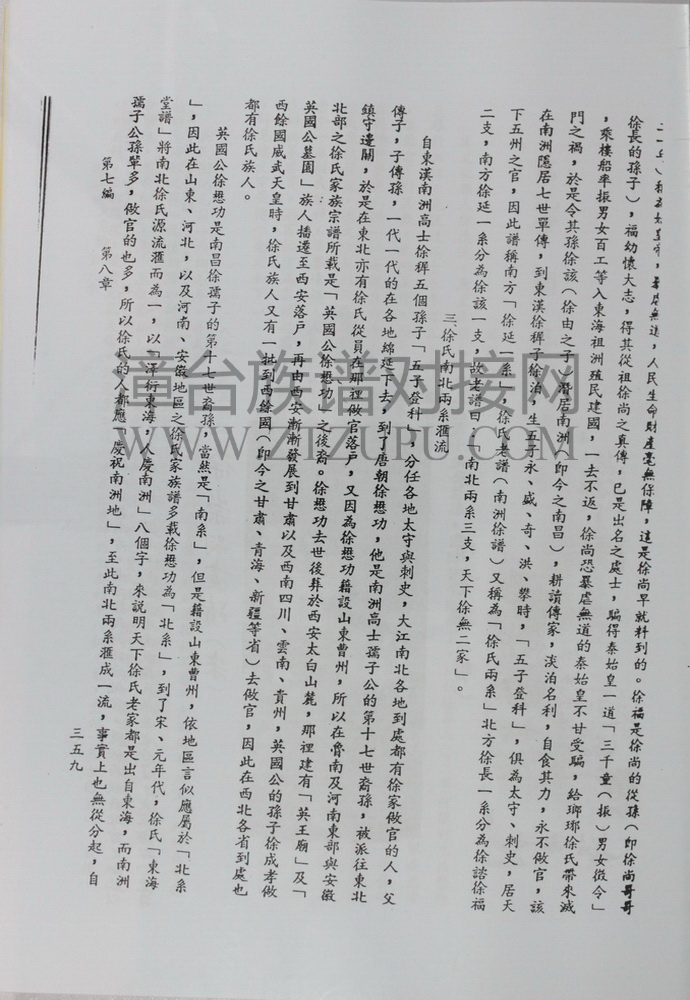 人民生命財產毫無保障，這是徐尚早就料到的。徐福是徐尚的從孫（即徐尚哥哥
徐長的孫子），福幼懷大志，得其從祖徐尚之真傳，已是出名之處士，騙得秦始皇一道「三千童（振）男女徵令」
，乘樓船率振男女百工等入東海祖洲殖民建國，一去不返，徐尚恐暴虐無道的秦始皇不甘受騙，給瑯琊徐氏帶來滅
門之禍，於是令其孫徐該（徐由之子）潛居南洲（即今之南昌），耕讀傳家，淡泊名利，自食其力，永不做官，該
在南洲隱居七世單傳，到東漢徐稺子徐泊，生五子永、威、奇、洪、攀時，「五子登科」，俱為太守、刺史，居天
下五州之官，因此譜稱南方「徐延一系」，徐氏老譜（南洲徐譜）又稱為「徐氏兩系」北方徐長一系分為徐諮徐福
二支，南方徐延一系分為徐該一支，故老譜曰：「南北兩系三支，天下徐無二家」。
三、徐氏南北兩系滙流
自東漢南洲高士徐稺五個孫子「五子登科」，分任各地太守與刺史，大江南北各地到處都有徐家做官的人，父
傳子，子傳孫，一代一代的在各地綿延下去，到了唐朝徐懋功，他是南洲高士孺子公的第十七世裔孫，被派往東北
鎮守邊關，於是在東北亦有徐氏從員在那裡做官落戶，又因為徐懋功籍設山東曹州，所以在魯南及河南東部與安徽
北部之徐氏家族宗譜所載是「英國公徐懋功」之後裔。徐懋功去世後葬於西安太白山麓，那裡建有「英王廟」及「
英國公墓園」族人播遷至西安落戶，再由西安漸漸發展到甘肅以及西南四川、雲南、貴州，英國公的孫子徐成孝做
西餘國威武天皇時，徐氏族人又有一批到西徐國（即今之甘肅、青海、新疆等省）去做官，因此在西北各省到處也
都有徐氏族人。
英國公徐懋功是南昌徐孺子的第十七世裔孫，當然是「南系」，但是籍設山東曹州，依地區言似應屬於「北系
」，因此在山東、河北，以及河南、安徽地區之徐氏家族譜多載徐懋功為「北系」，到了宋、元年代，徐氏「東海
堂譜」將南北徐氏源流滙而為一，以「洋衍東海，人慶南洲」八個字，來說明天下徐氏老家都是出自東海，而南洲
孺子公孫輩多，做官的也多，所以徐氏的人都應「慶祝南洲地」，至此南北兩系滙成一流，事實上也無從分起，自
第七編 第八章
三五九
童台族谱对接网
WWW.ZIZUPU.COM